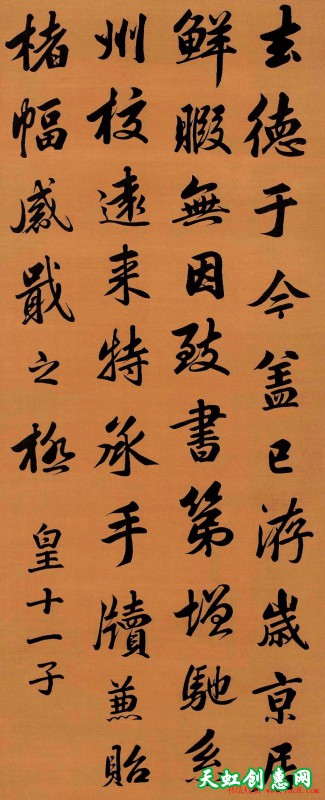 去德于今盖已洊歲京居
鮮暇無因致書第增馳系
州校遠来特承手牘兼貽
楮幅感戢之極 皇十一子
天虹创惠网